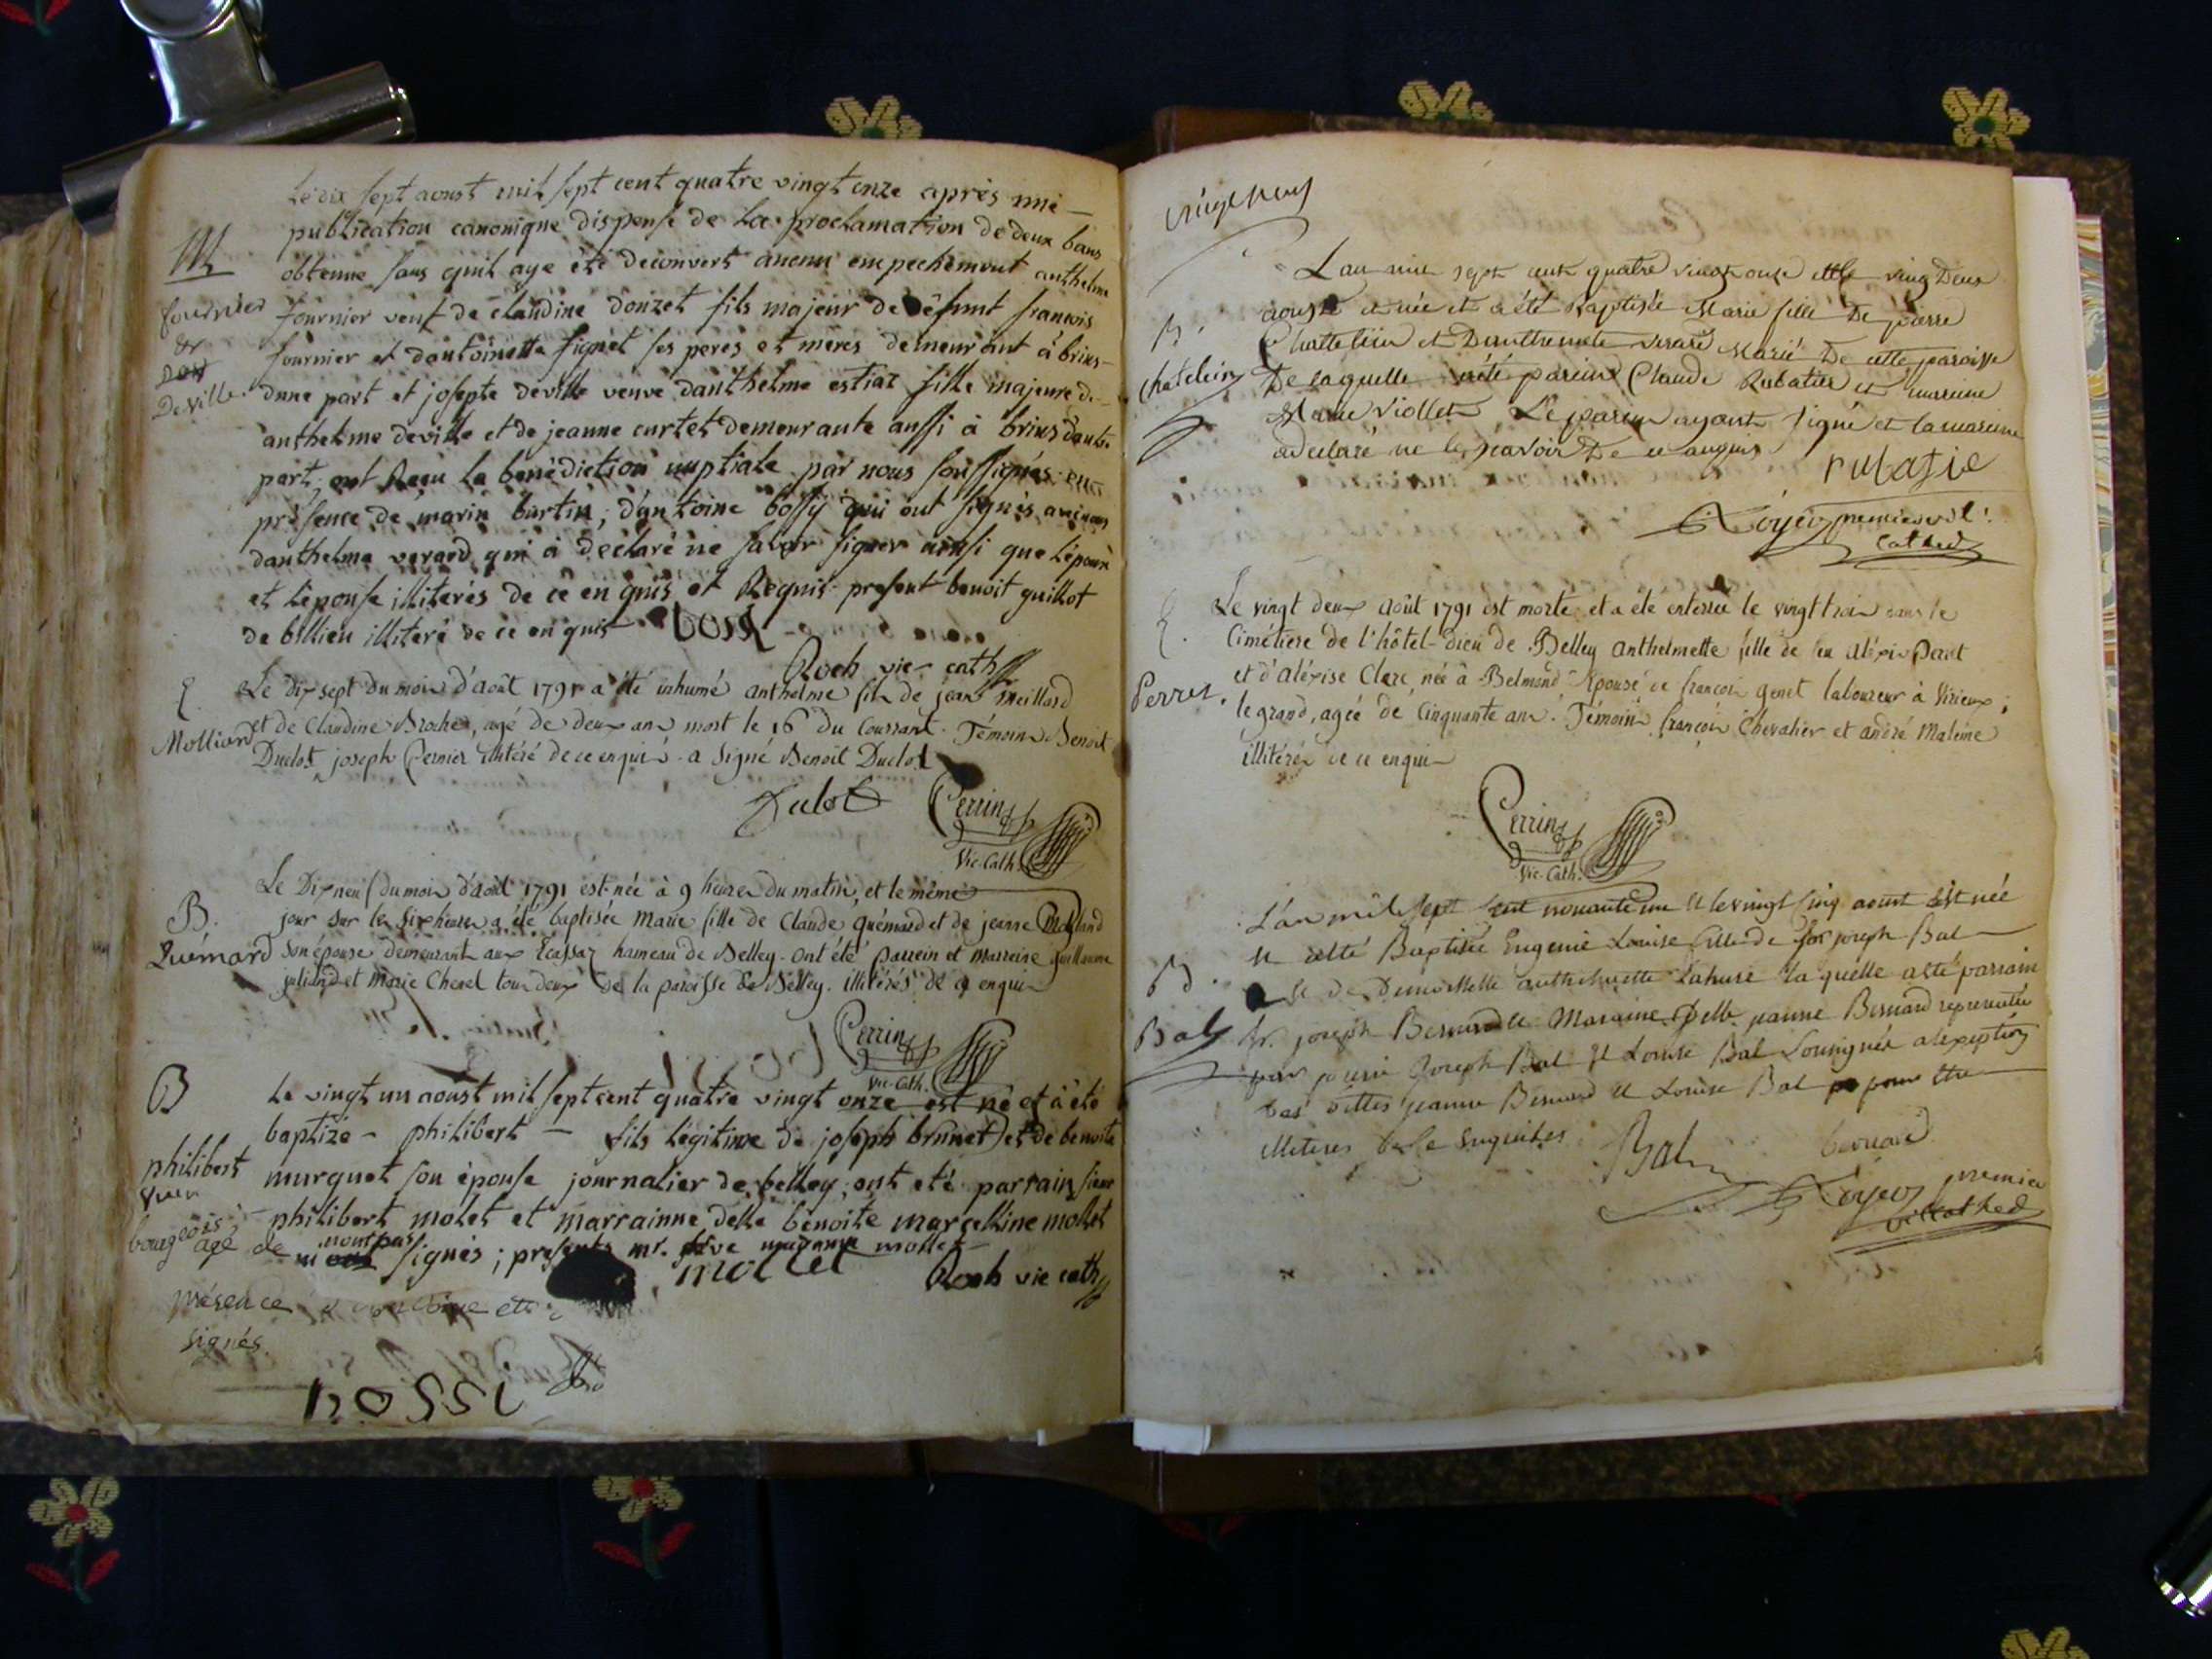 Le dix sept aoust mil sept cent quatre vingt onze après une
publication canonique dispense de la proclamation de deux bans
M
obtenue sans quil aye été decouvert aucun empechement anthelme
fournier
fournier veuf de claudine douzet fils majeur de défunt francois
&
fournier et dantoinette signet ses peres et mères demeurant à brins
Deville
dune part et josepte deville veuve danthelme estiat fille majeure de
anthelme deville et de jeanne curtet demeurante aussi à brins dautre
part, ont Recu la bénédiction nuptiale par nous soussignés en
présence de marin burtin, d'antoine bossy qui ont signés avec nous
danthelme verard qui à déclaré ne savoir signer ainsi que l'époux
et l'épouse illiterés de ce en quis et Requis present benoit guillot
de billieu illiteré de ce en quis
Roch vic cath
E
Le dix sept du mois d'août 1791 a été inhumé anthelme fils de jean meillard
Molliard
et de Claudine Brochet, agé de deux ans mort le 16 du Courrant. Témoins Benoit
Duclot joseph Pernier illitéré de ce enquis. a Signé Benoit Duclot
Perrin
Vic. Cath.
Le Dix neuf du mois d'août 1791 est née à 9 heures du matin, et le même
B.
jour sur les six heures a été baptisée Marie fille de Claude Quémard et de jeanne
Quémard
son épouse demeurant aux Ecassaz hameau de Belley. ont été parrein et marreine guillaume
juliand et Marie Chenel tous deux de la paroisse de Belley. illitérés de ce enquis
Perrin
Vic. Cath.
B
Le vingt un aoust mil sept cent quatre vingt onze est né et à été
baptizé - philibert - fils légitime de joseph brunet et de benoite
philibert
murguet son épouse journalier de belley, ont eté parrain sieur
philibert molet et marrainne delle benoite marcelline mollet
bourgeois
agé de
n'ont pas signés; presents mr.
mollet
Roch vic cath
présence
signés.
L'an mil sept cent quatre vingt onze et le ving Deux
aoust est née et a été Baptisée Marie fille De pierre
B.
Chattelin et Danthemete verare Marié De cette paroisse
Chatelein
De laquelle a été parein Claude Rubatier et mareine
Marie Viollet Le parein ayant signé et la mareine
a declaré ne le sçavoir De ce anquis
rubatie
Royer premier vic.
Cathed
Le vingt deux août 1791 est morte et a été enterrée le vingt trois dans le
E.
Cimétiere de l'hôtel-dieu de Belley anthelmette fille de feu aléxis
et d'aléxise Clerc, née à Belmond Epouse de françois genet laboureur à Virieux
Perret.
le grand, agée de Cinquante ans. Témoins françois Chevalier et andré Maleine
illitérés de ce enquis
Perrin
Vic. Cath.
L'an mil sept cent nonante un et le vingt cinq aoust est née
et a été Baptisée Eugenie Louise fille de joseph Bal
B.
et de Demoiselle anthelmette Lahure la quelle a été parrain
Bal
Sr. joseph Bernard et Maraine Delle jeanne Bernard representée
par pierre Joseph Bal et Louise Bal Sousignés a l'exeption
des dittes jeanne Bernard et Louise Bal pour etre
illiteres de ce enquises
Bal
bernard
Royer premier
vic cathed